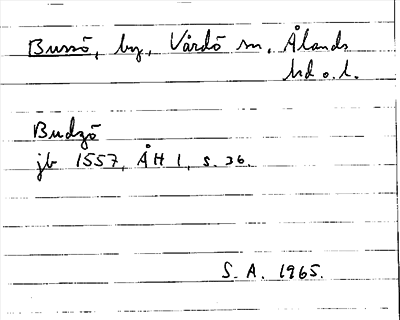 Bussö, by, Vårdö sn, Ålands
hd o. l.
Budzö
jb 1557, ÅH 1, s. 36.
S. A. 1965.